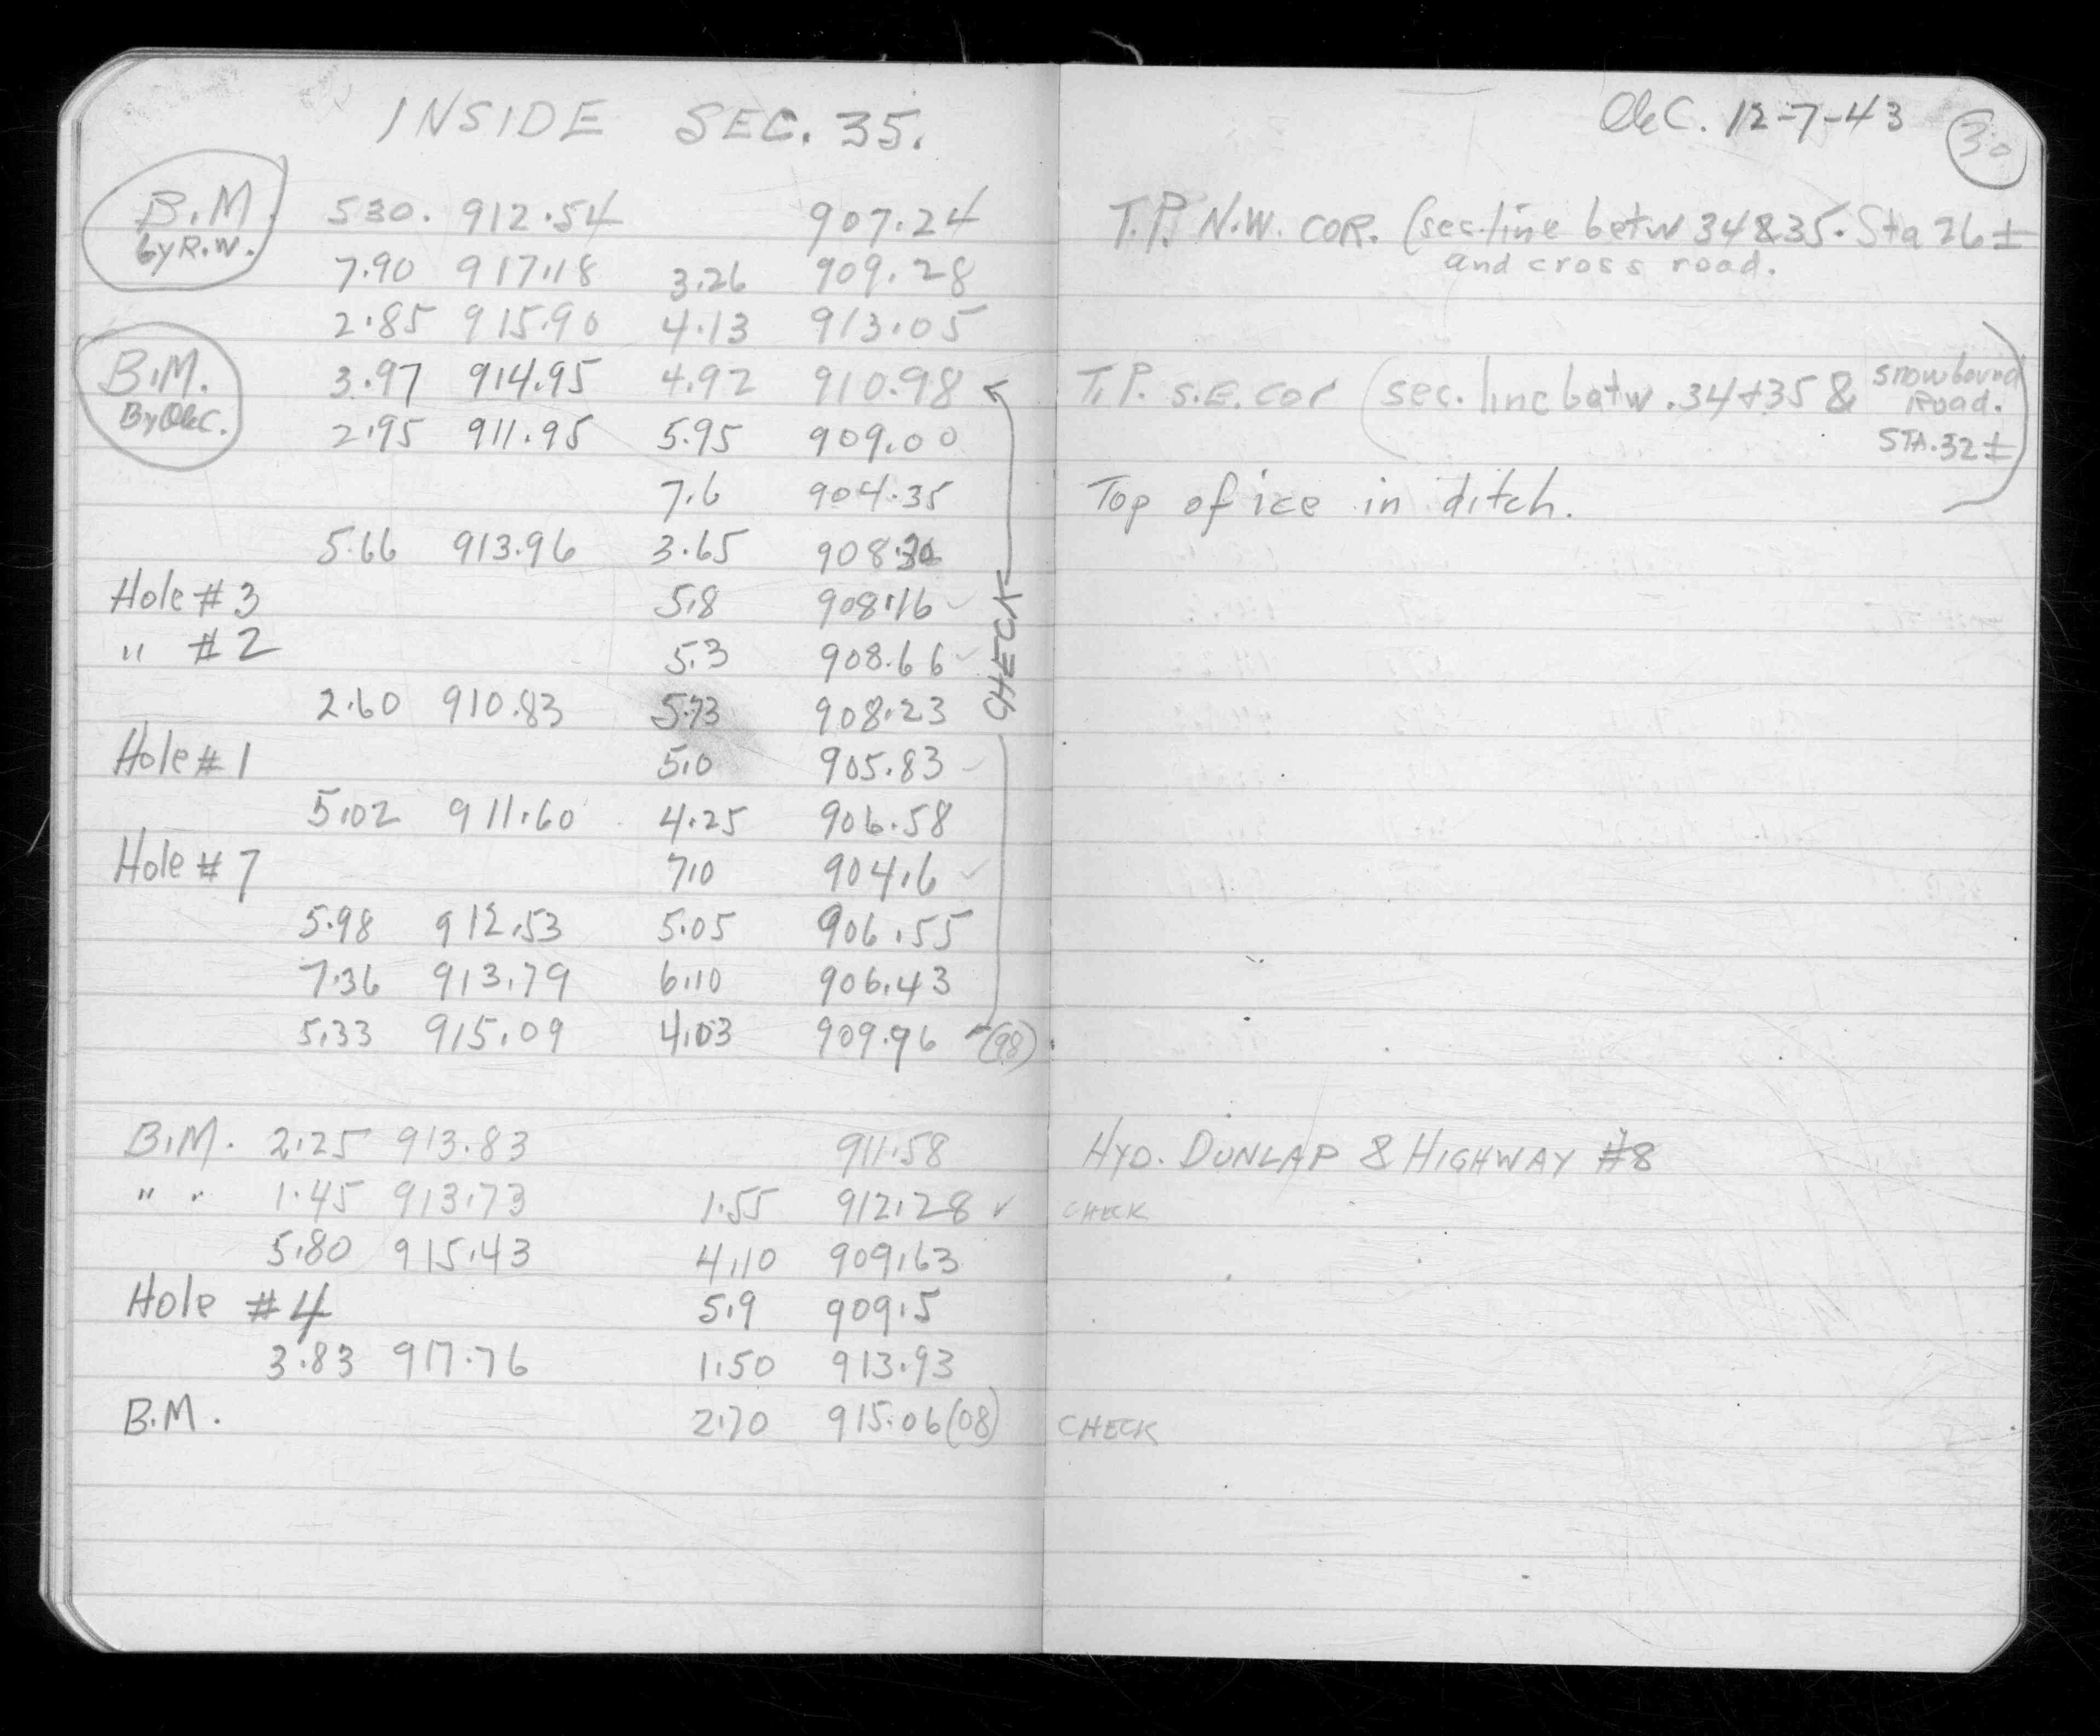 INSIDE SEC. 35.
B.M. by R.W. 530. 912.54 907.24
7.90 917.18 3.26 909.28
2.85 915.90 4.13 913.05
B.M. By OleC. 3.97 914.95 4.92 910.98
2.95 911.95 5.95 909.00
7.6 904.35
5.66 913.96 3.65 908.30
Hole #3 5.8 908.16
" #2 5.3 908.66
2.60 910.83 5.73 908.23
Hole #1 5.0 905.83
5.02 911.60 4.25 906.58
Hole #7 7.0 904.6
5.98 912.53 5.05 906.55
7.36 913.79 6.10 906.43
5.33 915.09 4.03 909.96 (98)
CHECK
B.M. 2.25 913.83 911.58
" " 1.45 913.73 1.55 912.28 ✓
5.80 915.43 4.10 909.63
Hole #4 5.9 909.5
3.83 917.76 1.50 913.93
B.M. 2.70 915.06 (08)
OleC. 12-7-43 30
T.P. N.W. COR. (sec. line betw 34 & 35. Sta 26 ±
and cross road.
T.P. S.E. cor (sec. line betw. 34 + 35 & snowbound
Road.
STA. 32 ±)
Top of ice in ditch.
HYD. DUNLAP & HIGHWAY #8
CHECK
CHECK